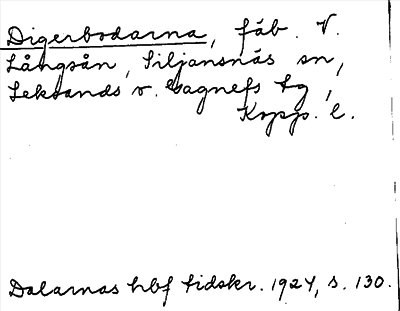 Digerbodarna, fäb. V.
Långsån, Siljansnäs sn,
Leksands o. Gagnefs tg,
Kopp. l.
Dalarnas hbf tidskr. 1924, s. 130.